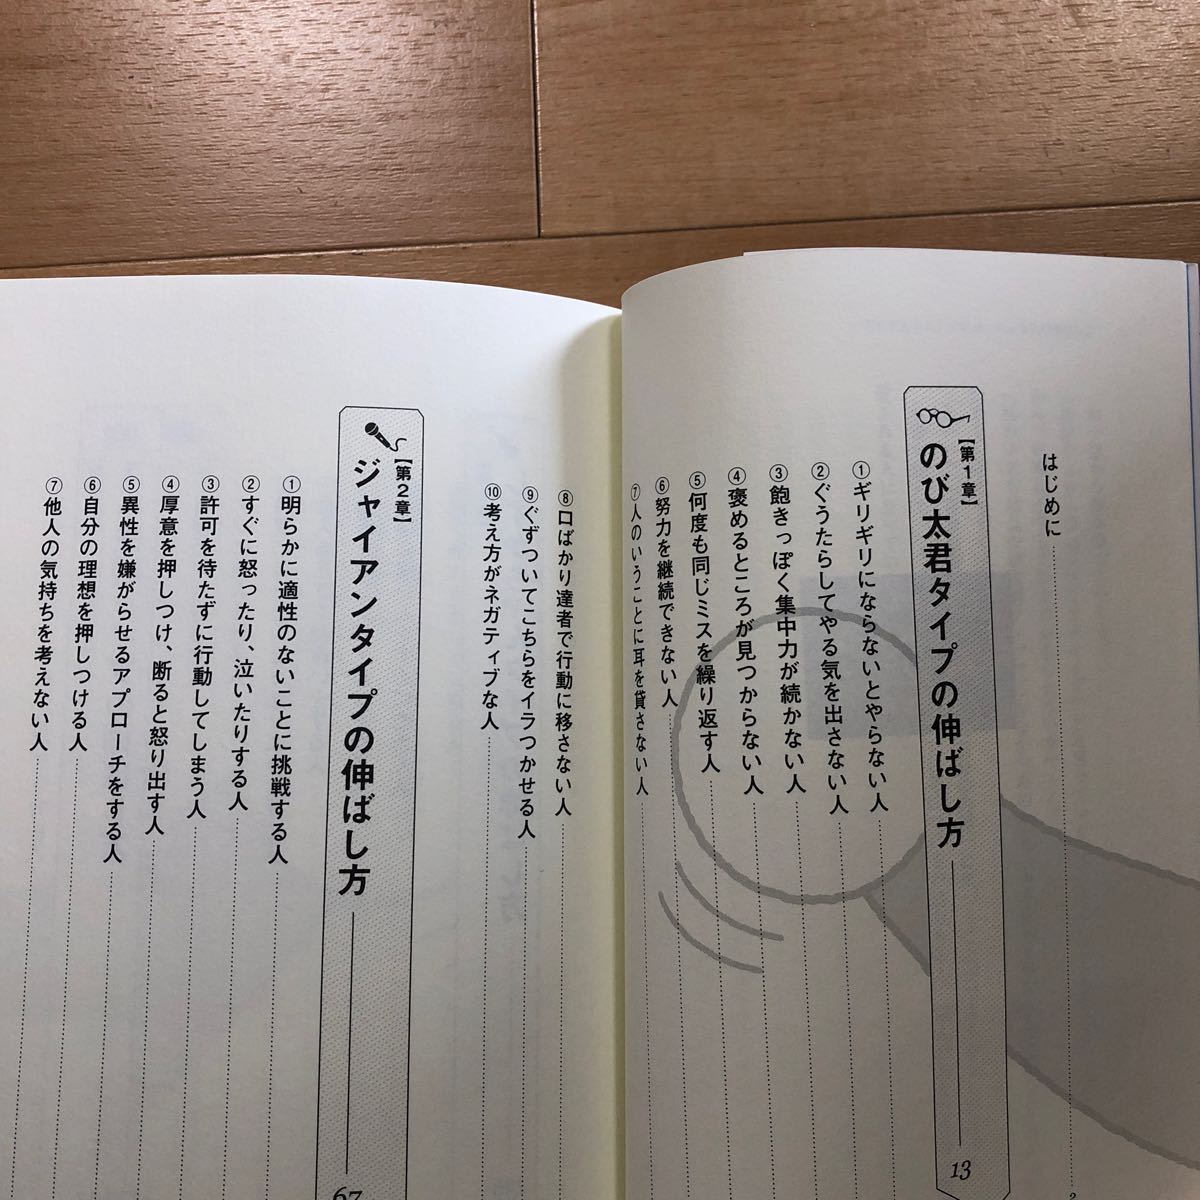 はじめに
2
【第1章】
のび太君タイプの伸ばし方
13
①ギリギリにならないとやらない人
②ぐうたらしてやる気を出さない人
③飽きっぽく集中力が続かない人
④褒めるところが見つからない人
⑤何度も同じミスを繰り返す人
⑥努力を継続できない人
⑦人のいうことに耳を貸さない人
⑧口ばかり達者で行動に移さない人
⑨ぐずついてこちらをイラつかせる人
⑩考え方がネガティブな人
【第2章】
ジャイアンタイプの伸ばし方
67
①明らかに適性のないことに挑戦する人
②すぐに怒ったり、泣いたりする人
③許可を待たずに行動してしまう人
④厚意を押しつけ、断ると怒り出す人
⑤異性を嫌がらせるアプローチをする人
⑥自分の理想を押しつける人
⑦他人の気持ちを考えない人